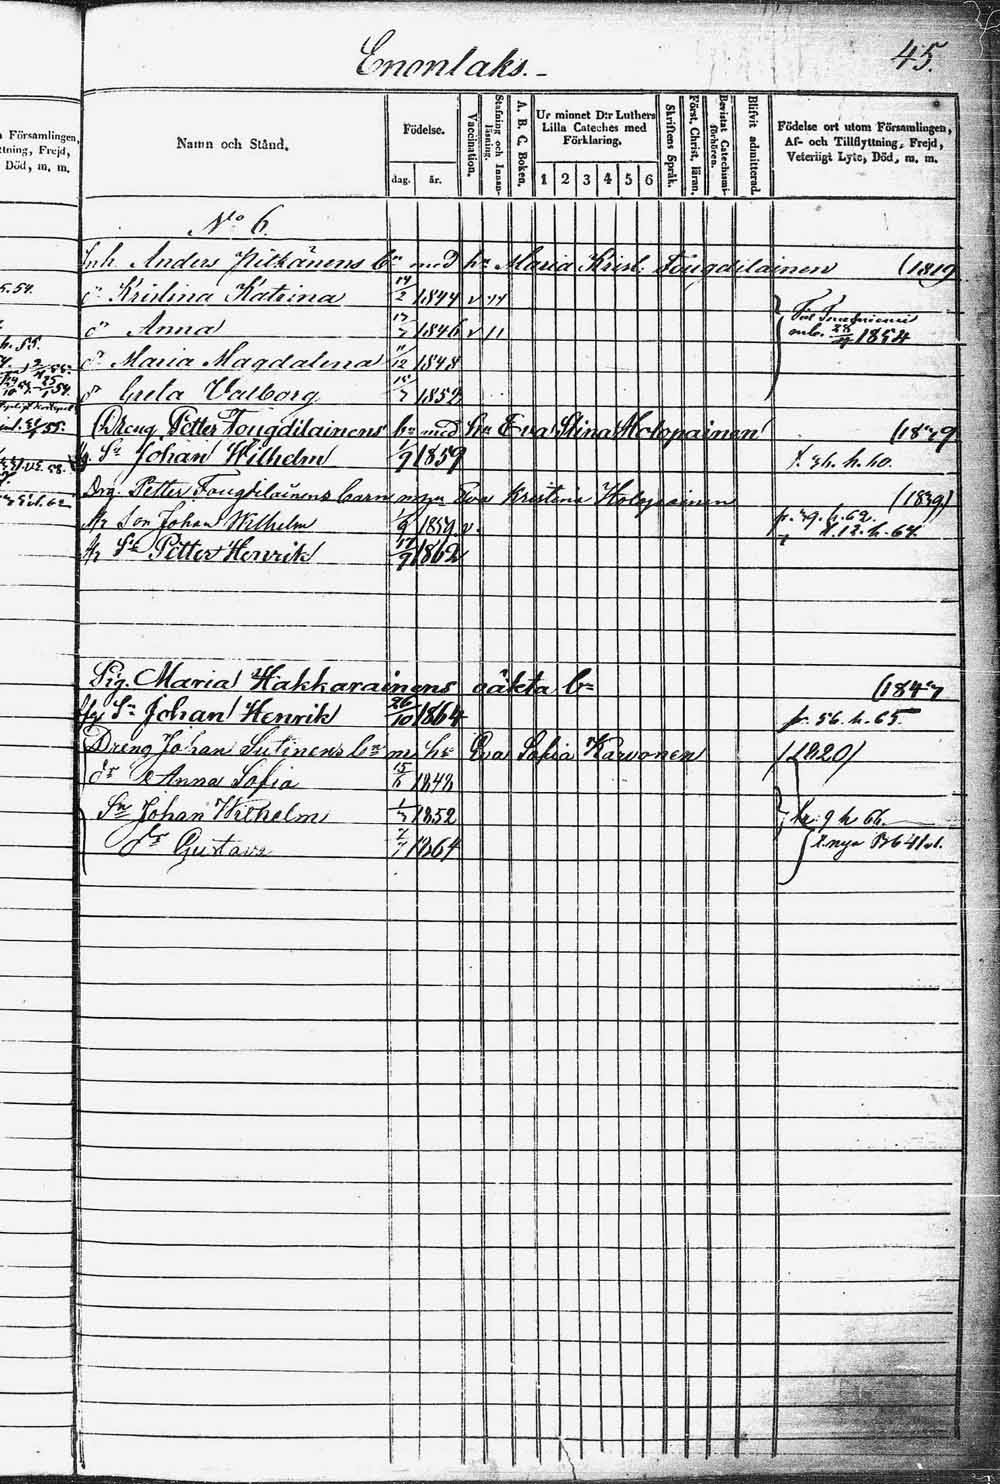 Enonlaks.
45.
Namn och Stånd.
Födelse.
dag.
år.
Vaccination.
Stafning och Innanläsning.
A. B. C. Boken.
Ur minnet D:r Luthers Lilla Cateches med Förklaring.
1 2 3 4 5 6
Skriftens Språk.
Först. Christ. läran.
Bevistat Catechismiförhören.
Blifvit admitterad.
Födelse ort utom Församlingen,
Af- och Tillflyttning, Frejd,
Veterligt Lyte, Död, m. m.
Församlingen,
ttning, Frejd,
Död, m. m.
No 6.
Inh. Anders Pitkänens bn med hu Maria Krist. Tougdilainen (1819
dr Kristina Katrina 14/2 1844 v
dr Anna 17/7 1846 v
1854
dr Maria Magdalena 11/12 1848
dr Greta Valborg 15/7 1852
Dreng Petter Tougdilainens bn med hu Eva Stina Holopainen (1839
Sn Johan Wilhelm 1/9 1859
h. 60.
Drg. Petter Tougdilainens barn Eva Kristina Holopainen (1839)
Son Johan Wilhelm 1/9 1859. v.
h. 62.
12. h. 64.
Sn Petter Henrik 17/9 1862
Pig. Maria Hakkarainens oäkta bn (1847
Sn Johan Henrik 26/10 1864
fr. 56. h. 65.
Dreng Johan Sutinens bn m. hu Eva Sofia Karvonen (1820)
dr Anna Sofia 15/6 1848
Sn Johan Wilhelm 1/7 1852
9 h 66.
Gustava 7/7 1864
nya